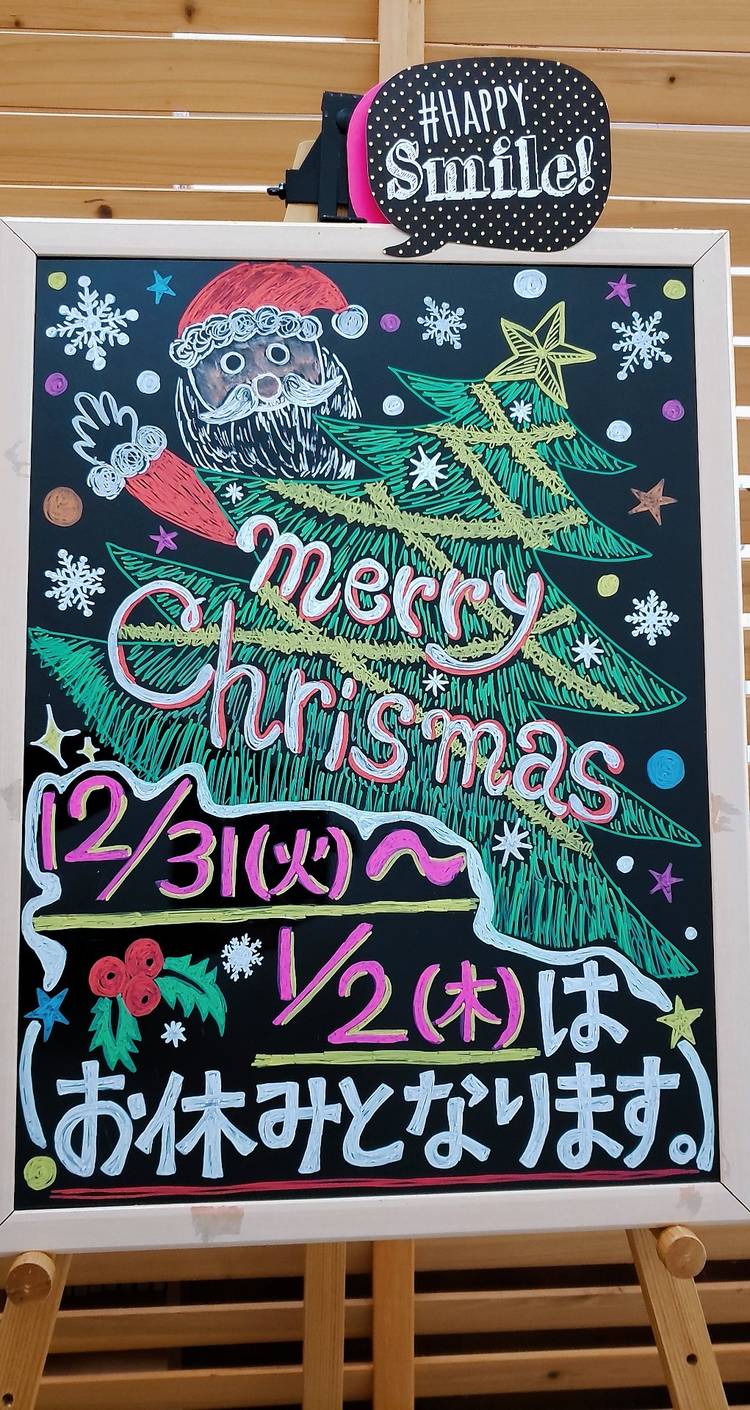 #HAPPY
Smile!
merry
Chrismas
12/31(火)〜
1/2(木)は
お休みとなります。